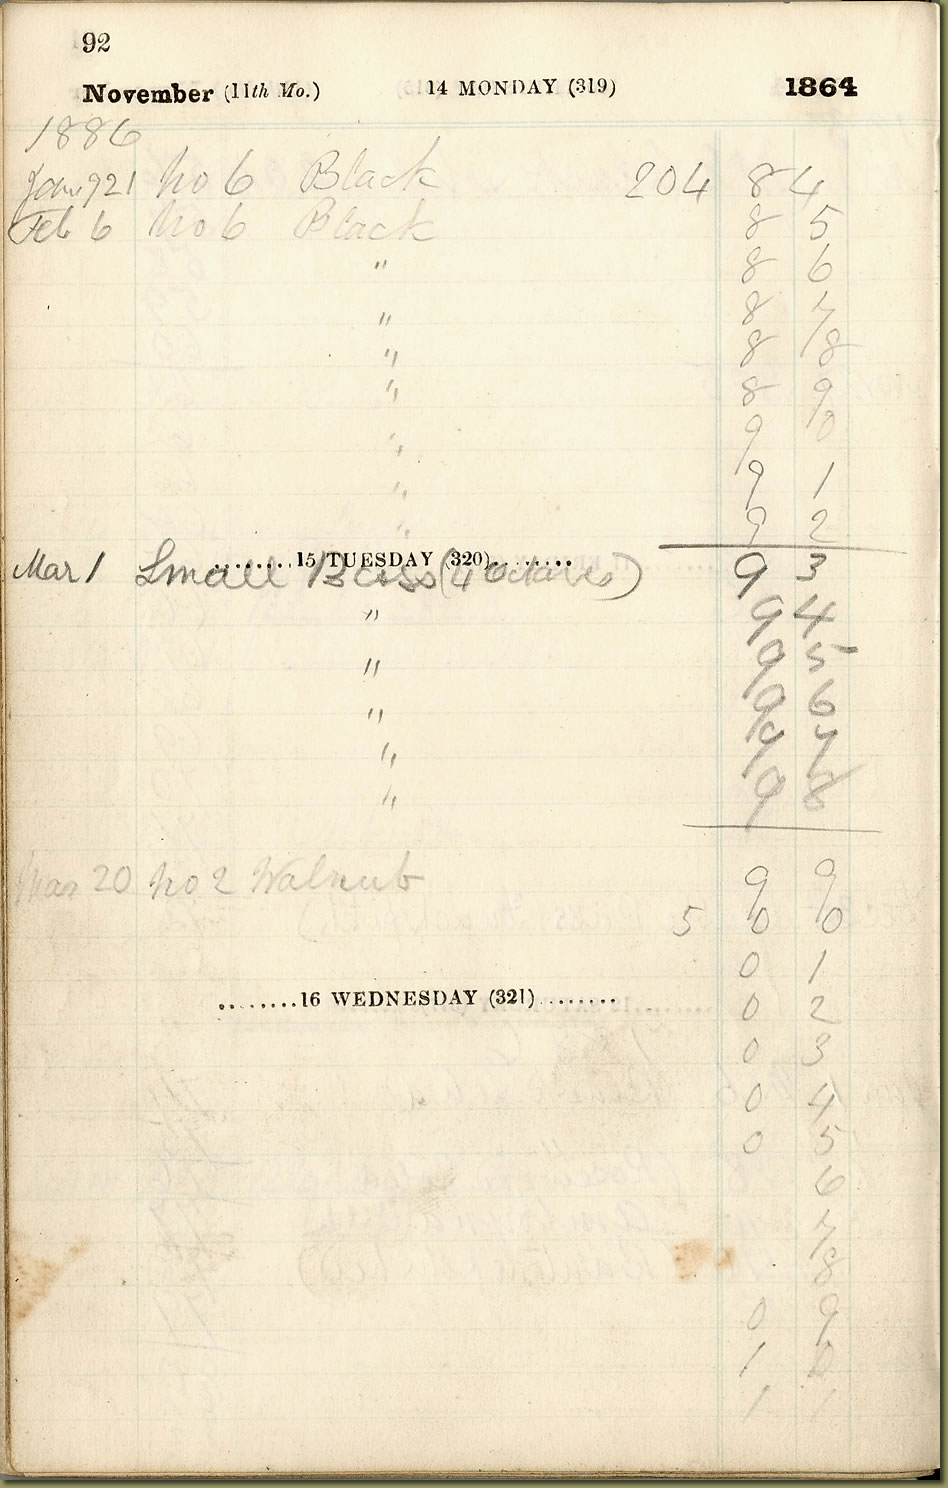 92
November (11th Mo.) 14 MONDAY (319) 1864
1886
Jan 21 No 6 Black 204 8 4
Feb 6 No 6 Black 8 5
" 8 6
" 8 7
" 8 8
" 8 9
" 9 0
" 9 1
" 9 2
........15 TUESDAY (320)........
Mar 1 Small Bass (4 Octave) 9 3
" 9 4
" 9 5
" 9 6
" 9 7
" 9 8
Mar 20 No 2 Walnut 9 9
5 0 0
0 1
........16 WEDNESDAY (321)........ 0 2
0 3
0 4
0 5
6
7
8
0 9
1 0
1 1